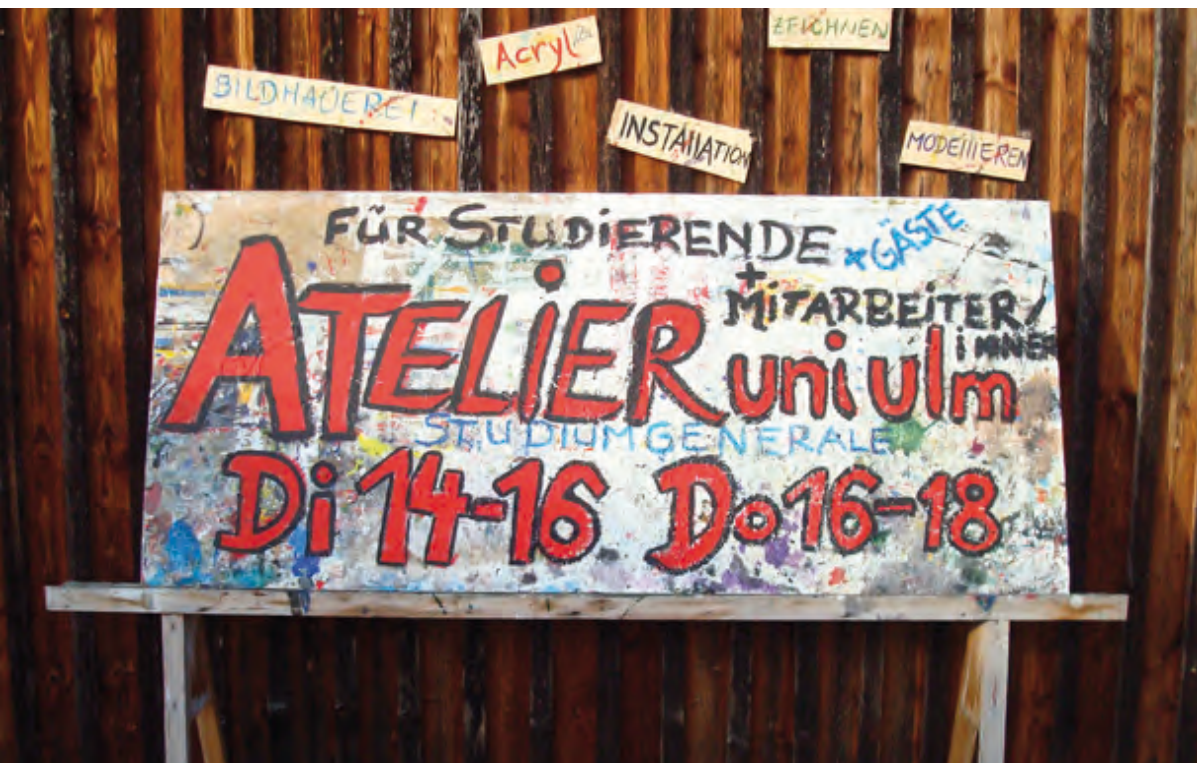 ZEICHNEN
Acryl
BILDHAUEREI
INSTAllATION
MODEllIEREN
FÜR STUDIERENDE + GÄSTE
+ MITARBEITER/
INNEN
ATELIER uni ulm
STUDIUM GENERALE
Di 14-16 Do 16-18